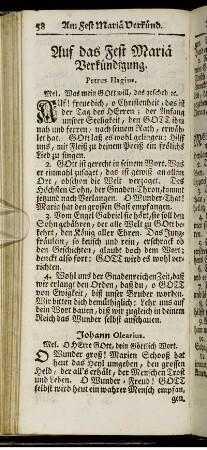 58 Am Fest Mariä Verkünd.
Auf das Fest Mariä
Verkündigung.
Petrus Hagius.
Mel. Was mein GOtt will, das gescheh ec.
AUf! freue dich, o Christenheit, das ist
der Tag des HErren; der Anfang
unsrer Seeligkeit, den GOTT ihm
nah und ferren, nach seinem Rath, erwäh-
let hat. GOtt laß es wohl gelingen: Hilf
uns, mit Fleiß zu deinem Preiß ein fröhlich
Lied zu singen.
2. GOtt ist gerecht in seinem Wort. Was
er einmahl zusaget, das ist gewiß an allem
Ort, obschon die Welt verzaget. Des
Höchsten Sohn, der Gnaden-Thron, kommt
jezund nach Verlangen. O Wunder-That!
Maria hat den grossen Gast empfangen.
3. Vom Engel Gabriel sie hört, sie soll den
Sohn gebähren, der alle Welt zu GOtt be-
kehrt, den König aller Ehren. Das Jung-
fräulein, so keusch und rein, erschrack ob
den Geschichten, glaubt doch dem Wort:
denckt also fort: GOTT wird es wohl ver-
richten.
4. Wohl uns der Gnadenreichen Zeit, daß
wir erlangt den Orden, daß du, o GOTT
von Ewigkeit, bist unser Bruder worden.
Wir bitten dich demüthiglich: Lehr uns auf
dein Wort bauen, biß wir zugleich in deinem
Reich das Wunder selbst anschauen.
Johann Olearius.
Mel. O HErre GOtt, dein Göttlich Wort.
O Wunder groß! Marien Schooß hat
heut das Heyl umgeben, den grossen
Held, der all's erhält, der Menschen Trost
und Leben. O Wunder-Freud! GOTT
selbst wird heut ein wahrer Mensch empfan-
gen,